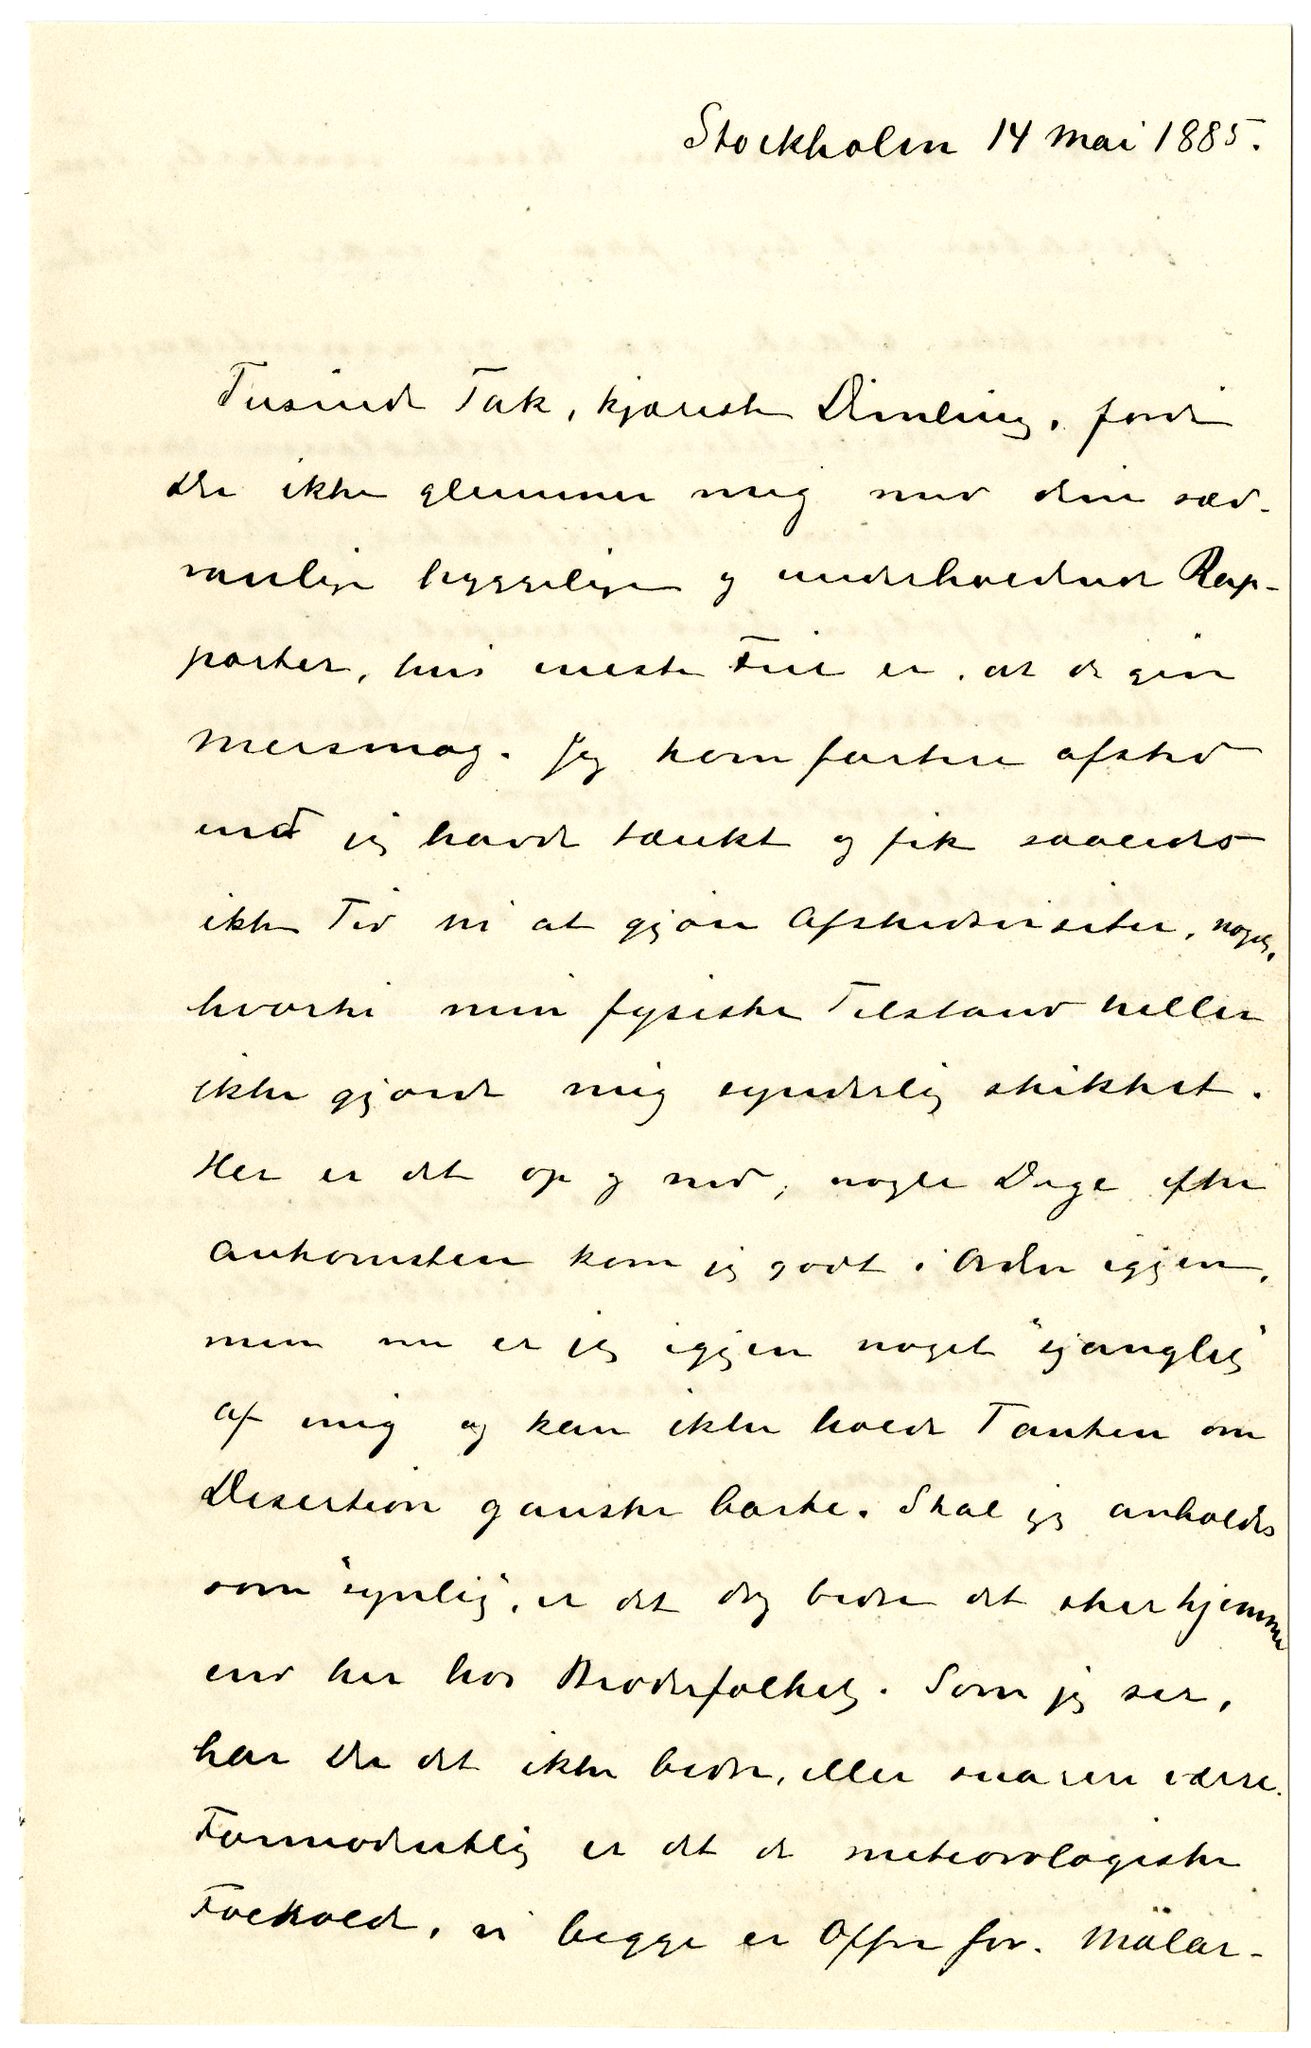 Stockholm 14 Mai 1885.
Tusinde Tak, kjæreste Dimling, fordi
De ikke glemmer mig med dine sæd-
vanlige hyggelige og underholdende Rap-
porter, hvis eneste Feil er, at de giver
Mersmag. Jeg kom fortere afsted
end jeg havde tænkt og fik saaledes
ikke Tid til at gjøre Afskedsvisiter, noget,
hvortil min fysiske Tilstand heller
ikke gjorde mig synderlig skikket.
Her er det op og ned, nogle Dage efter
Ankomsten kom jeg godt i Orden igjen,
men nu er jeg igjen noget
af mig og kan ikke holde Tanken om
Desertion ganske borte. Skal jeg anholdes
som "synlig", er det dog bedre det sker hjemme
end her hos Broderfolket. Som jeg ser,
har De det ikke bedre, eller snarere værre.
Formodentlig er det de meteorologiske
Forhold, vi begge er Offre for. Mälar-